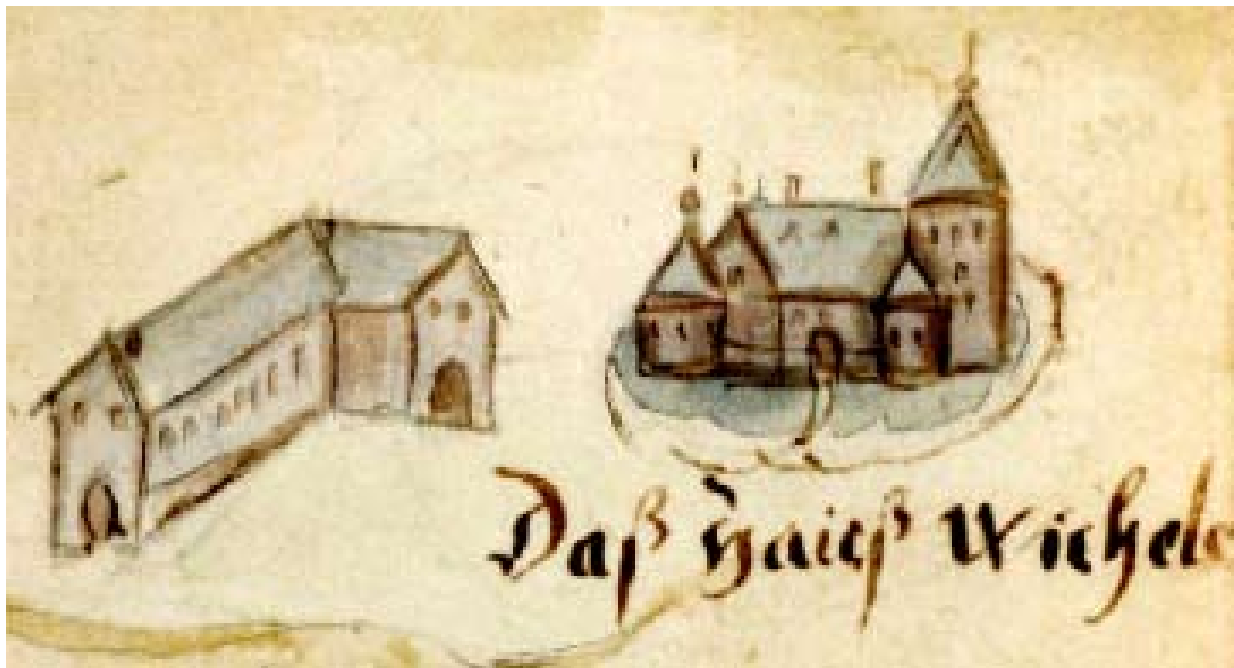 Daß Hauß Wichele